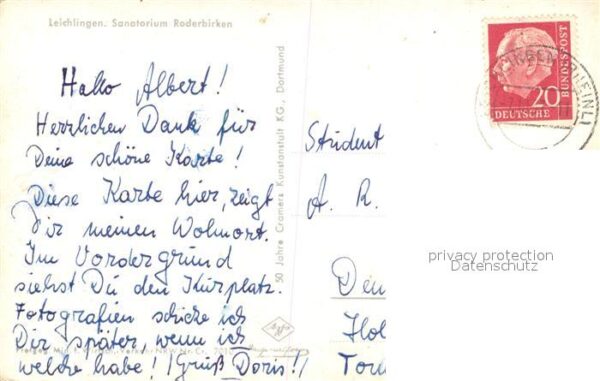 Leichlingen. Sanatorium Roderbirken
Hallo Albert!
Herzlichen Dank für
Deine schöne Karte!
Diese Karte hier, zeigt
Dir meinen Wohnort.
Im Vordergrund
siehst Du den Kurplatz.
Fotografien schicke ich
Dir später, wenn ich
welche habe! (Gruß Doris!)
50 Jahre Cramers Kunstanstalt KG., Dortmund
Agfa
20
DEUTSCHE
BUNDESPOST
Student
A. R.
privacy protection
Datenschutz